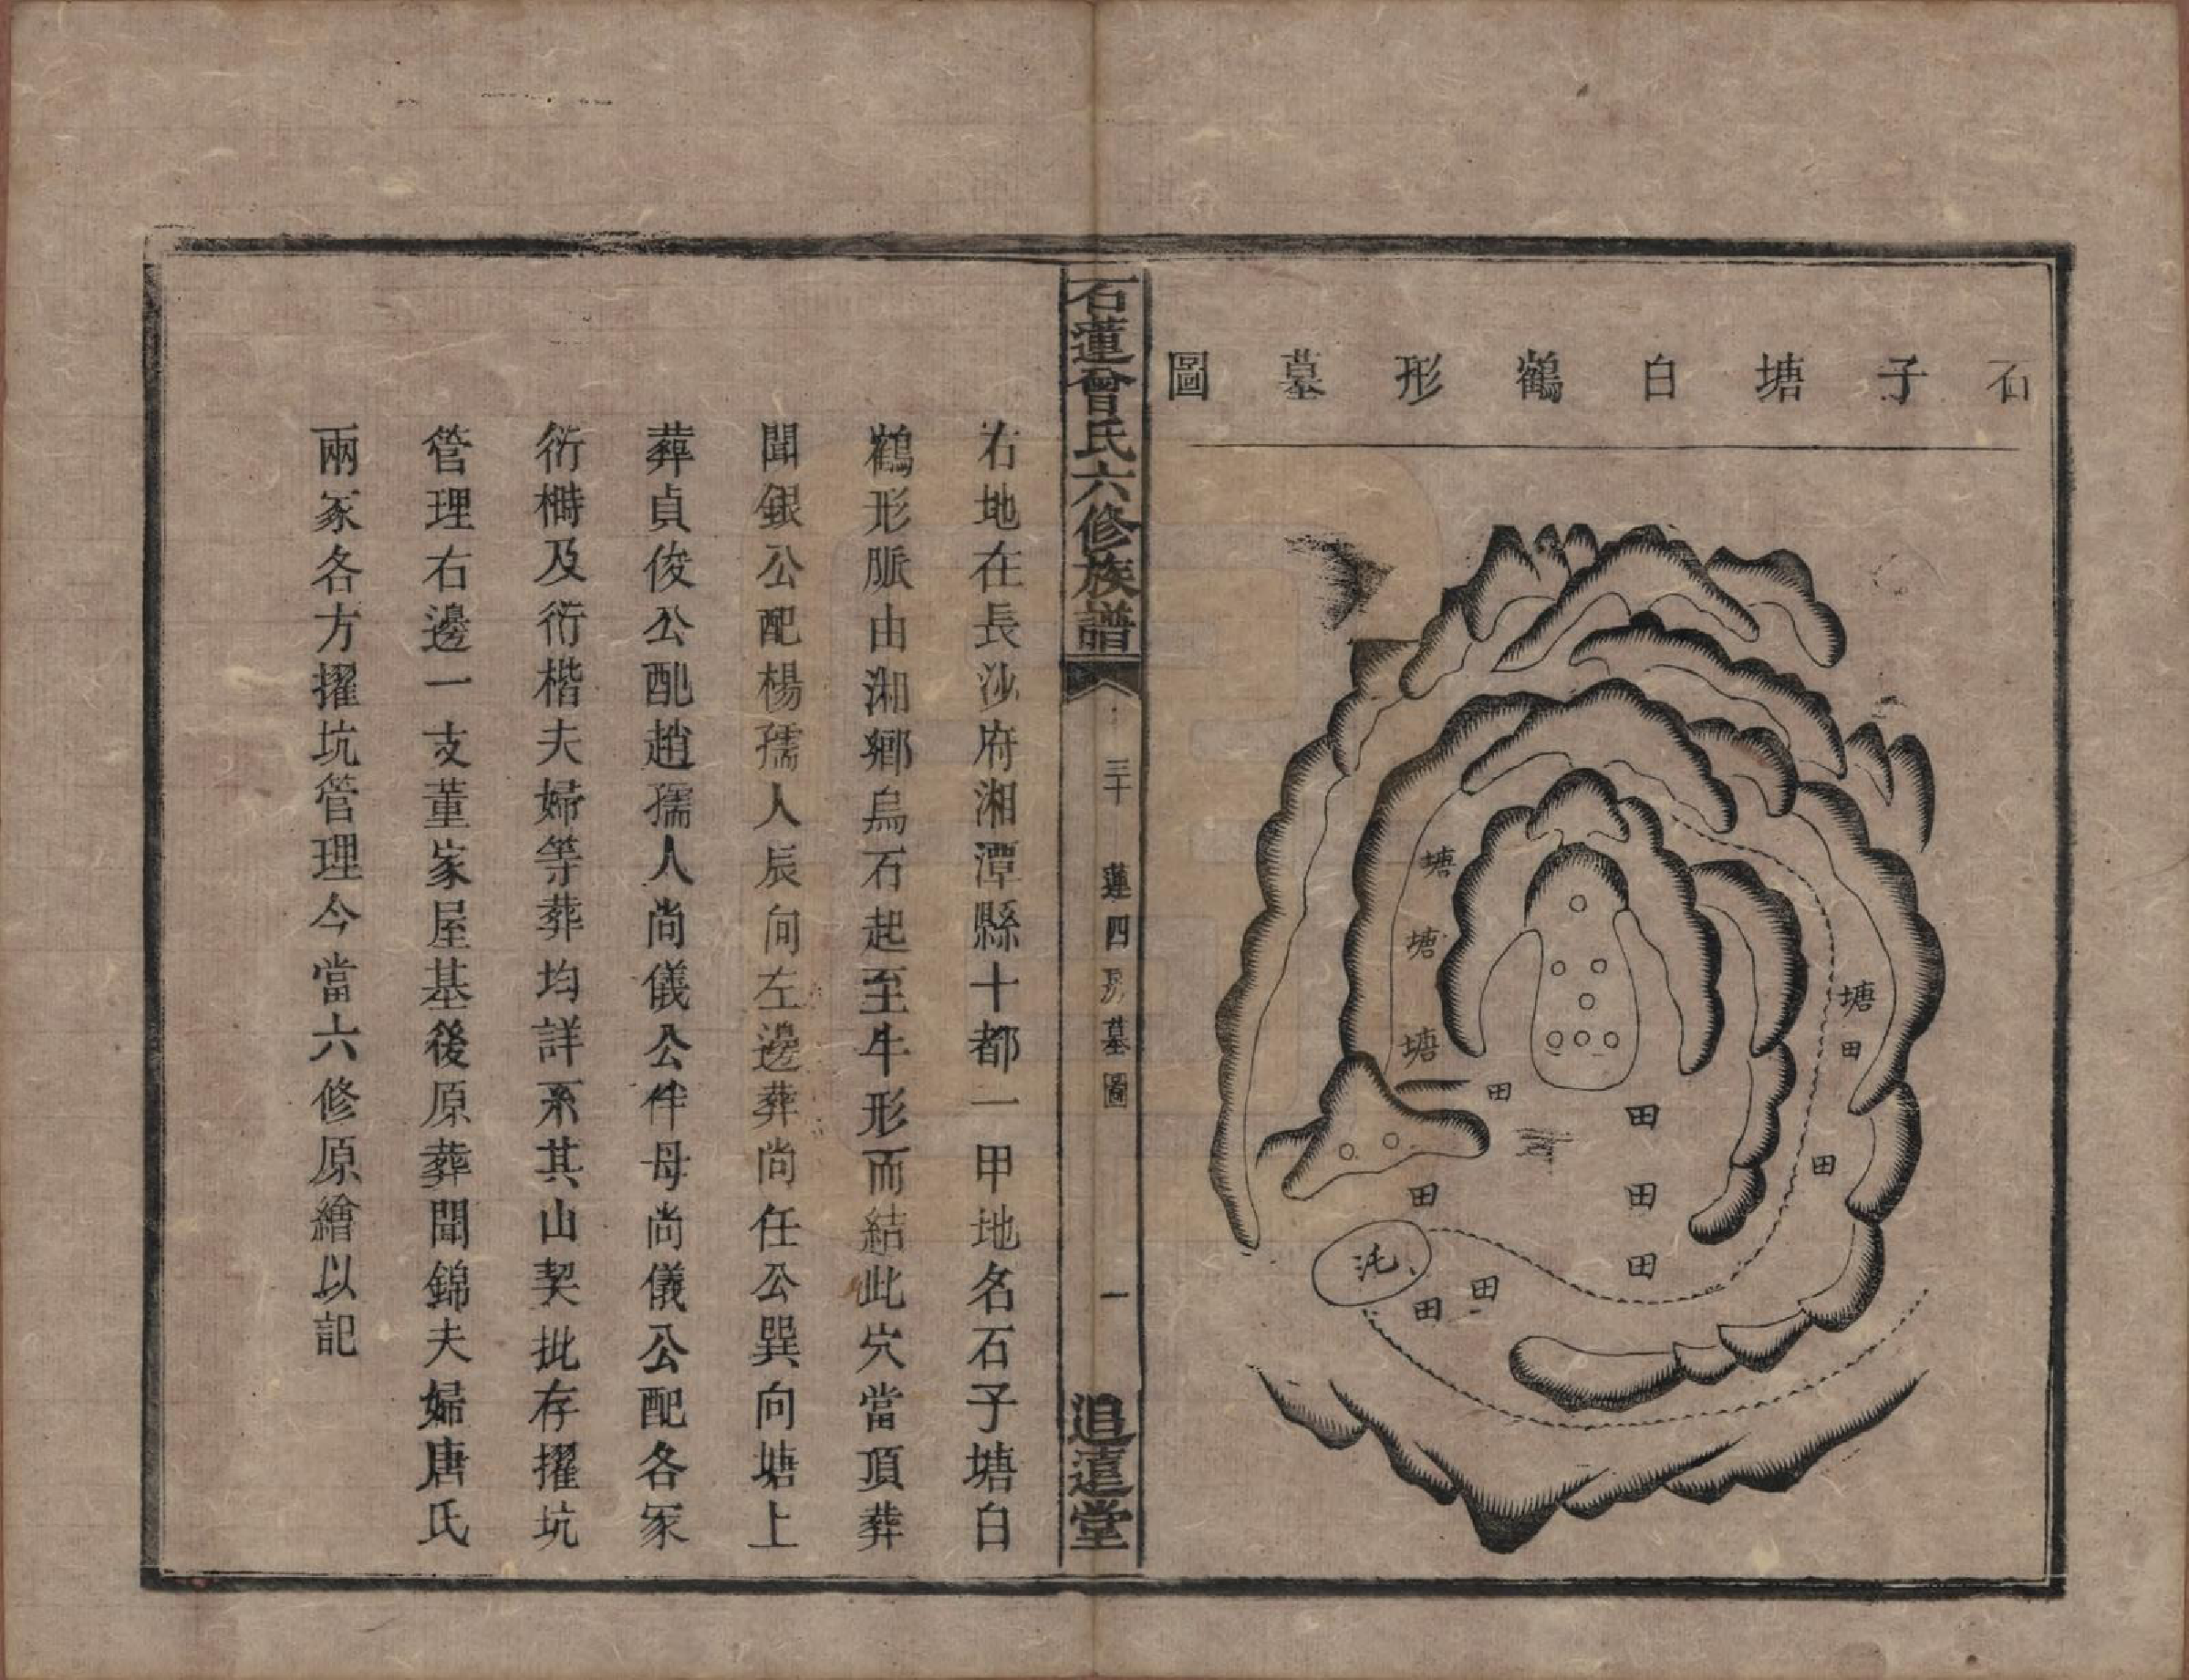 石子塘白鶴形墓圖
塘
塘
塘
塘
田
田
田
田
田
田
田
田
田
石蓮曾氏六修族譜
三十
蓮四房墓圖
一
追遠堂
右地在長沙府湘潭縣十都一甲地名石子塘白
鶴形脈由湘鄉烏石起至牛形而結此穴當頂葬
聞銀公配楊孺人辰向左邊葬尚任公巽向塘上
葬貞俊公配趙孺人尚儀公伴母尚儀公配各冢
衍榯及衍楷夫婦等葬均詳系其山契批存擢坑
管理右邊一支董家屋基後原葬聞錦夫婦唐氏
兩冢各方擢坑管理今當六修原繪以記